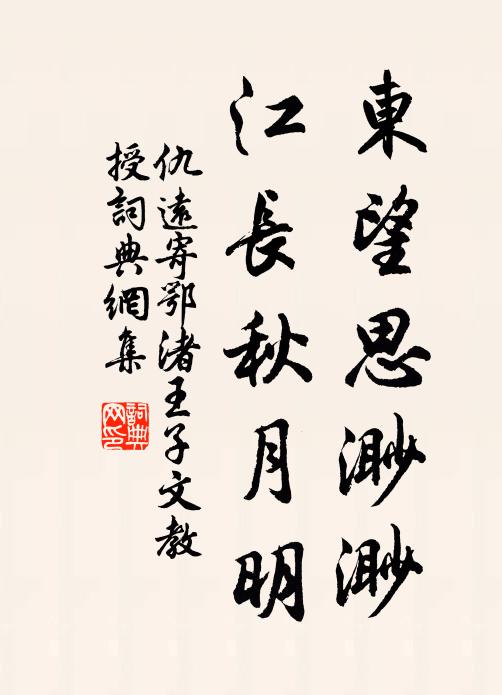 東望思渺渺
江長秋月明
仇遠寄鄂渚王子文教
授詞典網集
詞典網印